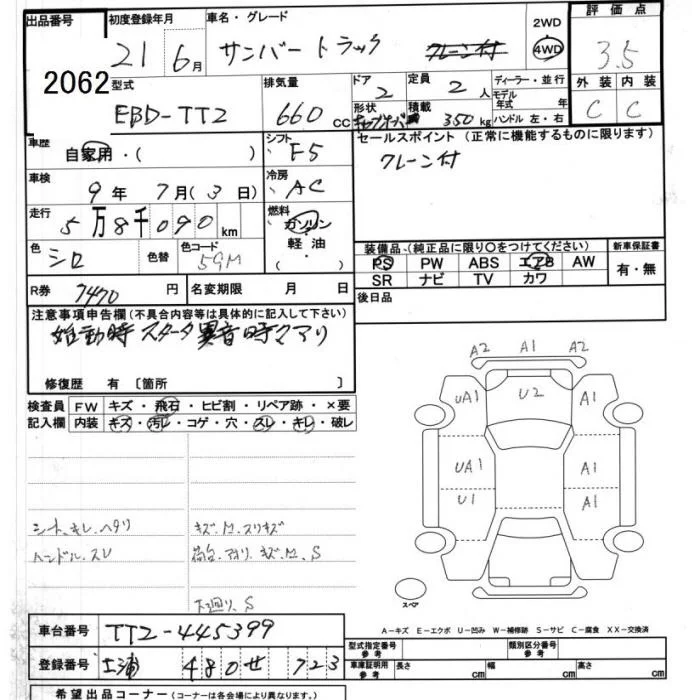 出品番号 2062
初度登録年月 21 6月
車名・グレード サンバートラック クレーン付
2WD 4WD
評価点 3.5
外装 内装
C C
型式 EBD-TT2
排気量 660 cc
ドア 2
定員 2 人
ディーラー・並行
モデル年式 年
形状
積載 350 kg
ハンドル 左・右
車歴 自家用・( )
シフト F5
セールスポイント (正常に機能するものに限ります)
クレーン付
車検 9年 7月(3日)
冷房 AC
走行 5万8千090km
燃料 ガソリン・軽油・( )
色 シロ
色替
色コード 59M
装備品 (純正品に限り○をつけてください)
新車保証書
PS PW ABS エアB AW
有・無
SR ナビ TV カワ
R券 7470 円
名変期限 月 日
後日品
注意事項申告欄 (不具合内容等は具体的に記入して下さい)
始動時 スタータ異音時々アリ
修復歴 有 〔箇所 〕
検査員 FW キズ・飛石・ヒビ割・リペア跡・×要
記入欄 内装 キズ・汚レ・コゲ・穴・スレ・キレ・破レ
A2 A1 A2
UA1 U2 A1
UA1 A1
U1 A1
シート、キレ、ヘタリ
キズ、M、スリキズ
ハンドル、スレ
荷台、アオリ、キズ、M、S
下廻リ、S
スペア
A-キズ E-エクボ U-凹み W-補修跡 S-サビ C-腐食 XX-交換済
車台番号 TT2-445399
型式指定番号 参考
類別区分番号 参考
登録番号 土浦 480 せ 723
車庫証明用 参考 長さ cm 幅 cm 高さ cm
希望出品コーナー (コーナーは各会場により異なります。)